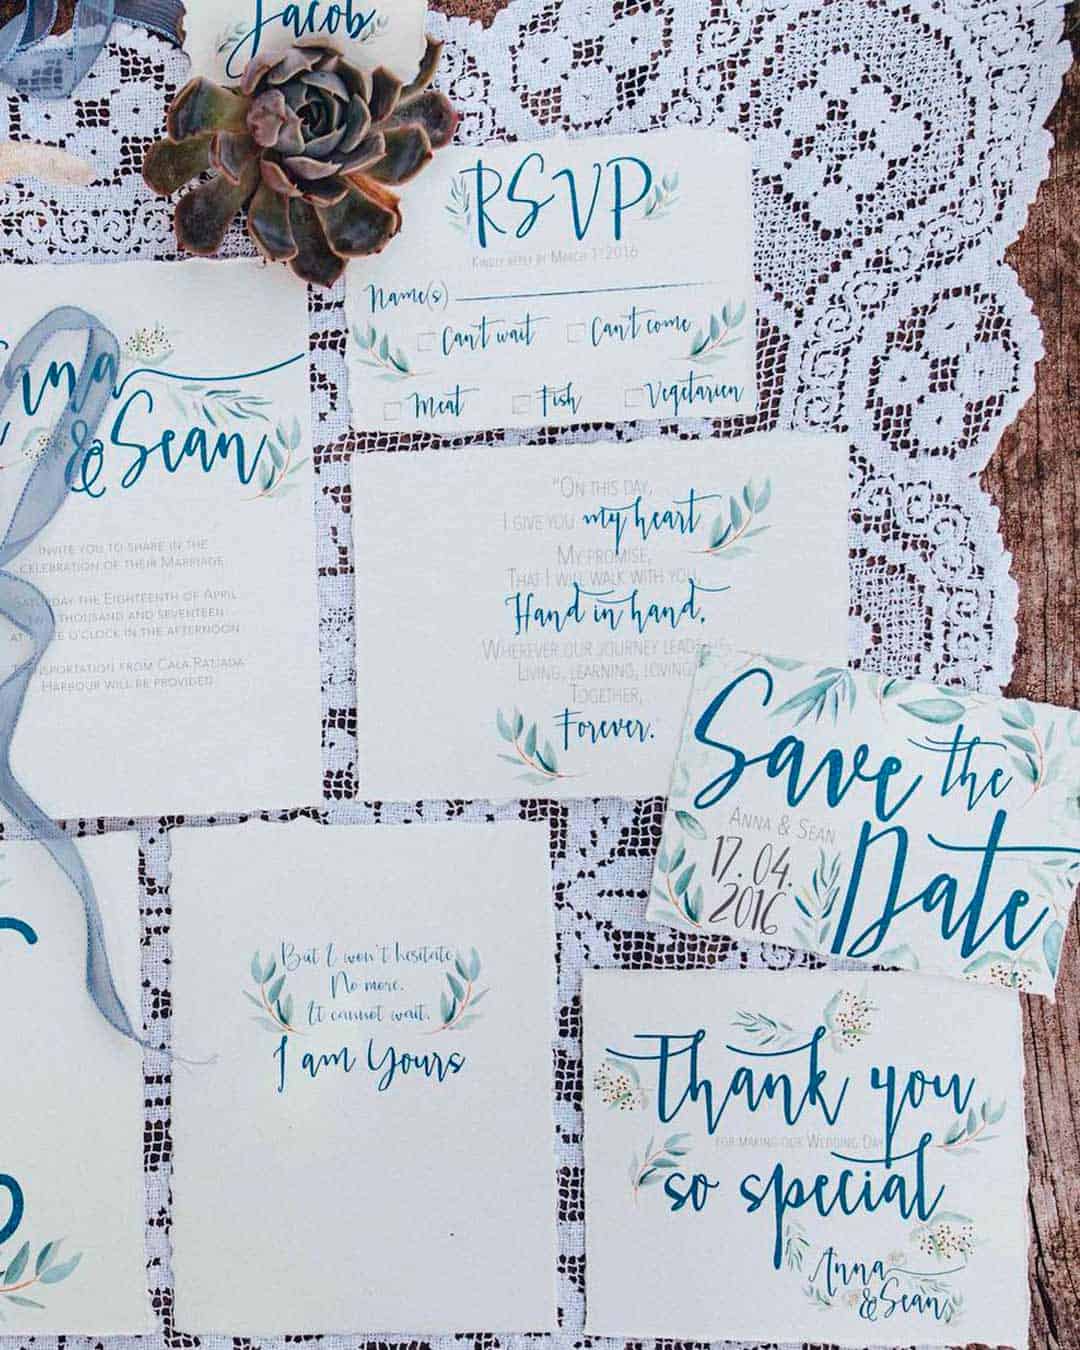 Jacob
RSVP
Kindly reply by March 1st 2016
Name(s)
Can't wait
Can't come
Meat
Fish
Vegetarien
& Sean
Invite you to share in the
celebration of their Marriage
Saturday the Eighteenth of April
thousand and seventeen
o'clock in the afternoon
Transportation from Cala Ratjada
Harbour will be provided
"On this day,
I give you my heart
My promise,
That I will walk with you,
Hand in hand,
Wherever our journey leads us
Living, learning, loving
Together,
Forever.
Save the
Date
Anna & Sean
17.04.
2016
But I won't hesitate
No more.
It cannot wait,
I am Yours
Thank you
for making our Wedding Day
so special
Anna
& Sean